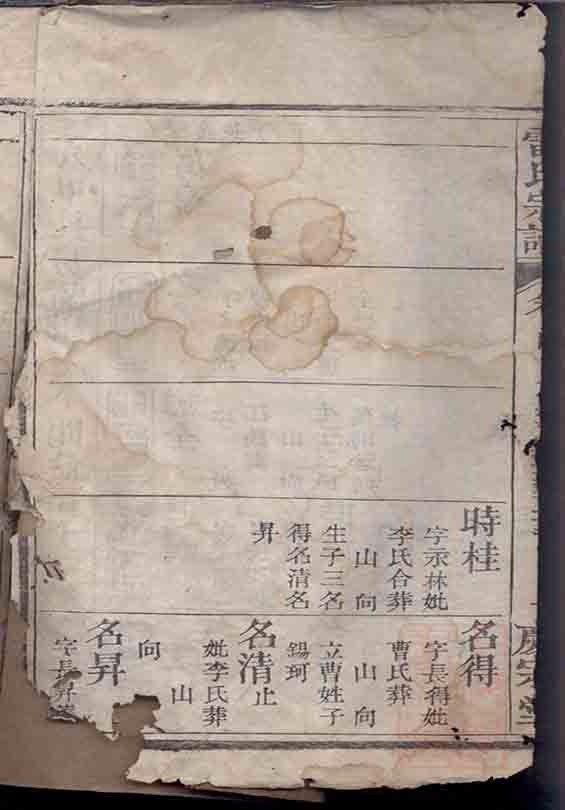 雷氏宗譜
慶宗堂
時桂
字示林妣
李氏合葬
山向
生子三名
得名清名
昇
名得
字長得妣
曹氏葬
山向
立曹姓子
錫珂
名清止
妣李氏葬
山
向
名昇
字長昇